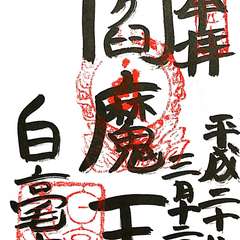 奉拝
平成二十
三月十二
閻魔王
白毫